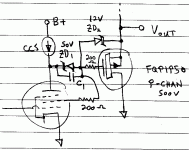 B+
12V
ZD2
Vout
CCS
50V
ZD1
200Ω
C1
FQP1P50
P-CHAN
500V
200Ω